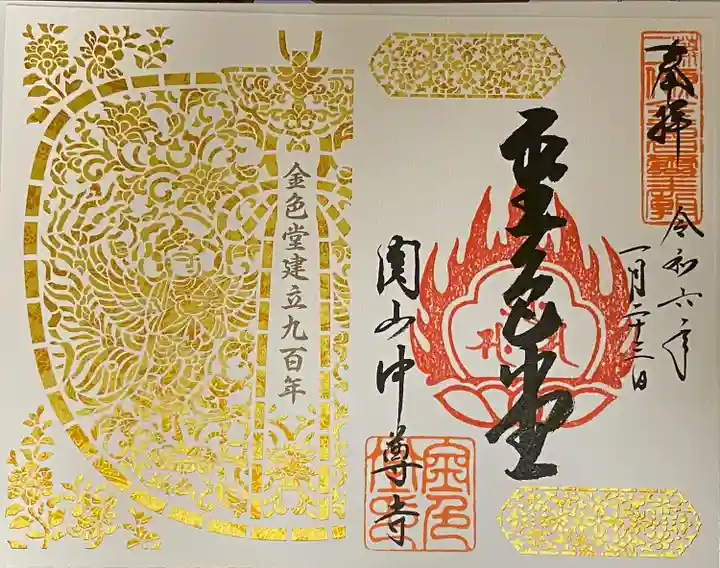 奉拝
令和六年
一月二十三日
金色堂
関山中尊寺
金色堂建立九百年